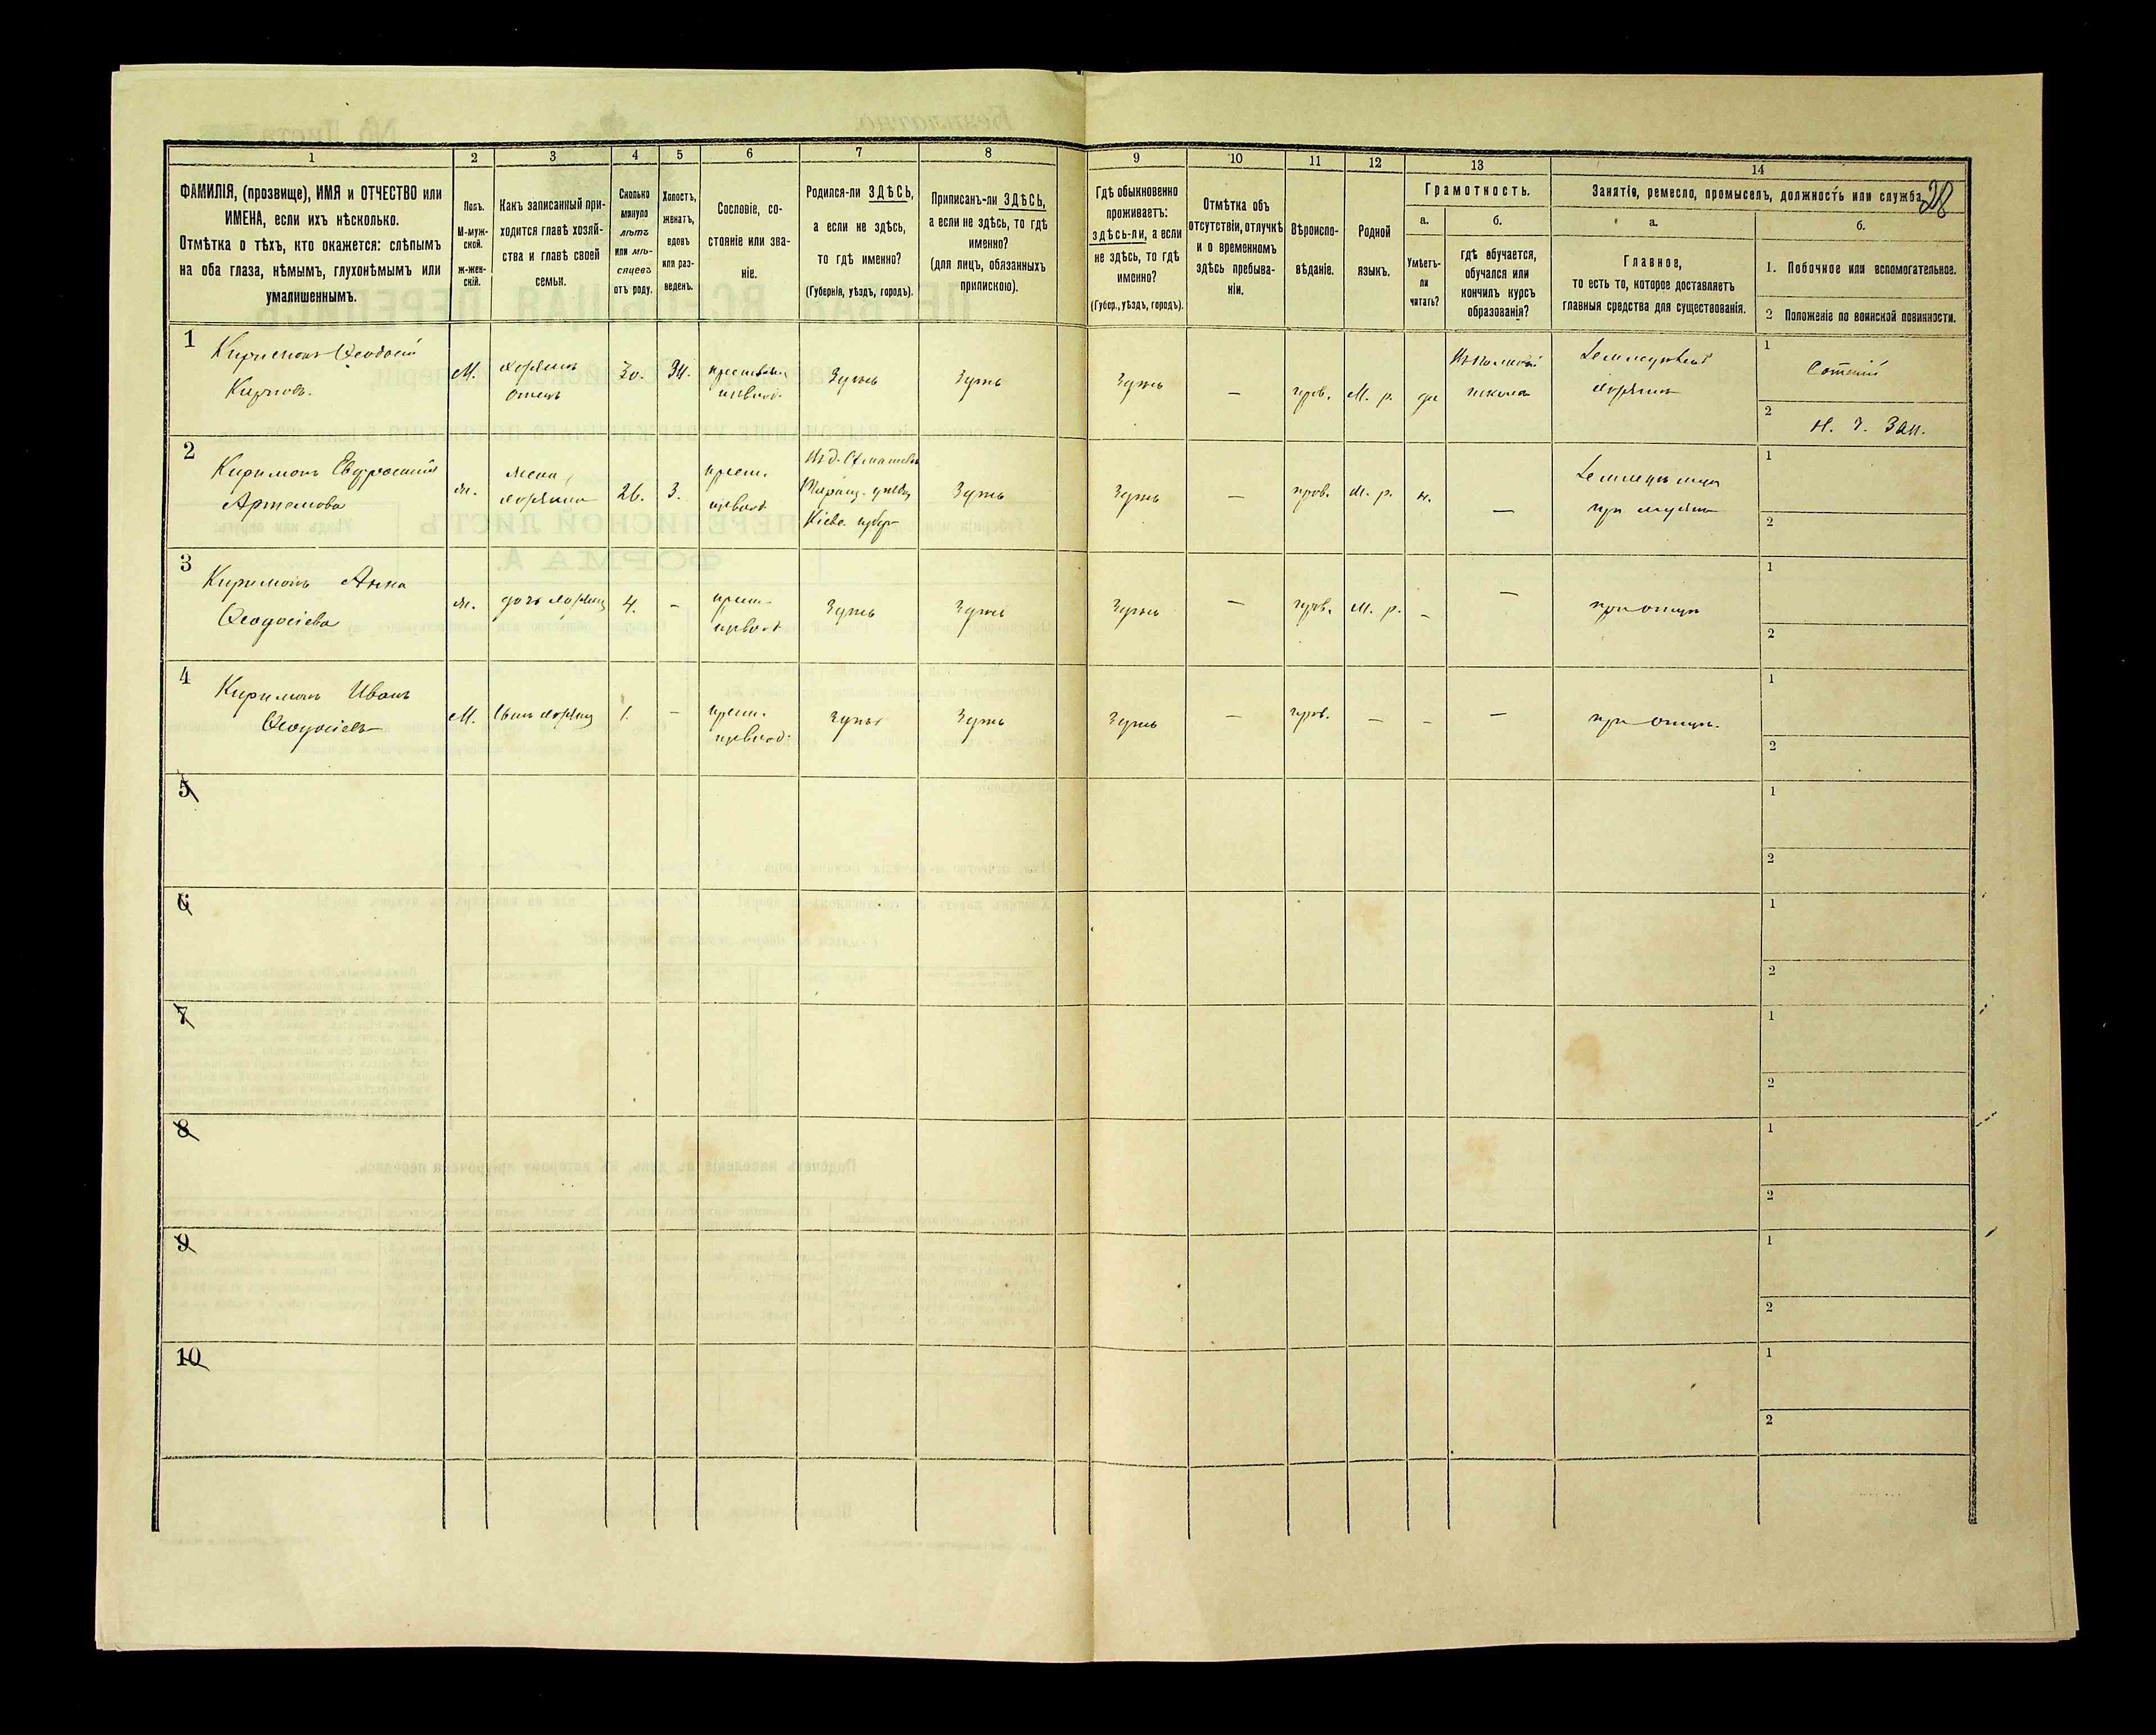 28
1 2 3 4 5 6 7 8 9 10 11 12 13 14
ФАМИЛІЯ, (прозвище), ИМЯ и ОТЧЕСТВО или
ИМЕНА, если ихъ нѣсколько.
Отмѣтка о тѣхъ, кто окажется: слѣпымъ
на оба глаза, нѣмымъ, глухонѣмымъ или
умалишеннымъ.
Полъ.
М-муж-
ской.
ж-жен-
скій.
Какъ записанный при-
ходится главѣ хозяй-
ства и главѣ своей
семьи.
Сколько
минуло
лѣтъ
или мѣ-
сяцевъ
отъ роду.
Холостъ,
женатъ,
вдовъ
или раз-
веденъ.
Сословіе, со-
стояніе или зва-
ніе.
Родился-ли ЗДѢСЬ,
а если не здѣсь,
то гдѣ именно?
(Губернія, уѣздъ, городъ).
Приписанъ-ли ЗДѢСЬ,
а если не здѣсь, то гдѣ
именно?
(для лицъ, обязанныхъ
припискою).
Гдѣ обыкновенно
проживаетъ:
здѣсь-ли, а если
не здѣсь, то гдѣ
именно?
(Губер., уѣздъ, городъ).
Отмѣтка объ
отсутствіи, отлучкѣ
и о временномъ
здѣсь пребыва-
ніи.
Вѣроиспо-
вѣданіе.
Родной
языкъ.
Грамотность.
а.
Умѣетъ-
ли
читать?
б.
гдѣ обучается,
обучался или
кончилъ курсъ
образованія?
Занятіе, ремесло, промыселъ, должность или служба
а.
Главное,
то есть то, которое доставляетъ
главныя средства для существованія.
б.
1. Побочное или вспомогательное.
2 Положеніе по воинской повинности.
1
Ѳеодосій
Карповъ.
М.
хозяинъ
отецъ
30.
Ж.
Здѣсь
Здѣсь
Здѣсь
—
прав.
М. р.
да
школа
Земледѣлецъ
хозяинъ
1
Сотскій
2
Н. ч. Зап.
2
Евфросинія
Артемова
ж.
жена
хозяина
26.
З.
крест.
Таращ. уѣзда
Кіев. губер
Здѣсь
Здѣсь
—
прав.
М. р.
н.
—
при мужѣ
1
2
3
Анна
Ѳеодосіева
ж.
дочь хозяина
4.
-
крест.
Здѣсь
Здѣсь
Здѣсь
—
прав.
М. р.
-
—
при отцѣ
1
2
4
Иванъ
Ѳеодосіевъ
М.
сынъ хозяина
1.
-
крест.
Здѣсь
Здѣсь
Здѣсь
—
прав.
—
-
—
при отцѣ.
1
2
5
1
2
6
1
2
7
1
2
8
1
2
9
1
2
10
1
2